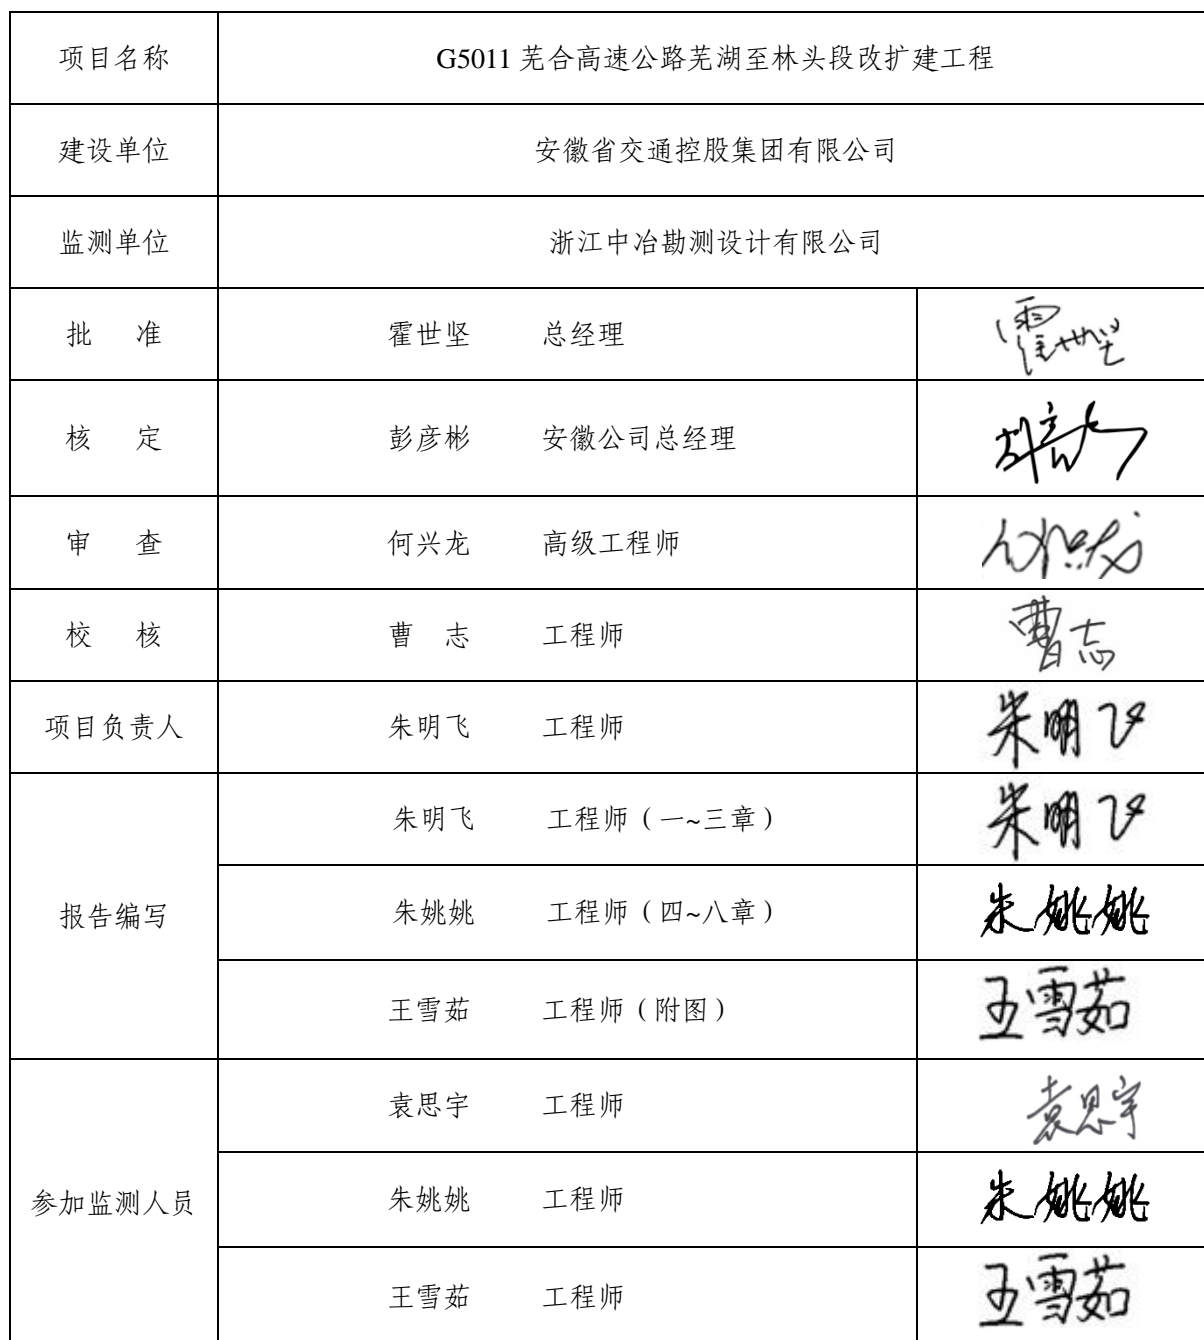 项目名称 G5011 芜合高速公路芜湖至林头段改扩建工程
建设单位 安徽省交通控股集团有限公司
监测单位 浙江中冶勘测设计有限公司
批 准 霍世坚 总经理 霍世坚
核 定 彭彦彬 安徽公司总经理
审 查 何兴龙 高级工程师 何兴龙
校 核 曹 志 工程师 曹志
项目负责人 朱明飞 工程师 朱明飞
报告编写 朱明飞 工程师（一~三章） 朱明飞
朱姚姚 工程师（四~八章） 朱姚姚
王雪茹 工程师（附图） 王雪茹
参加监测人员 袁思宇 工程师 袁思宇
朱姚姚 工程师 朱姚姚
王雪茹 工程师 王雪茹